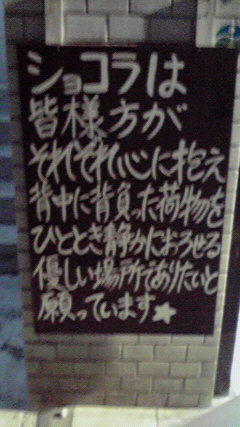 ショコラは
皆様方が
それぞれ心に抱え
背中に背負った荷物を
ひととき静かにおろせる
優しい場所でありたいと
願っています★